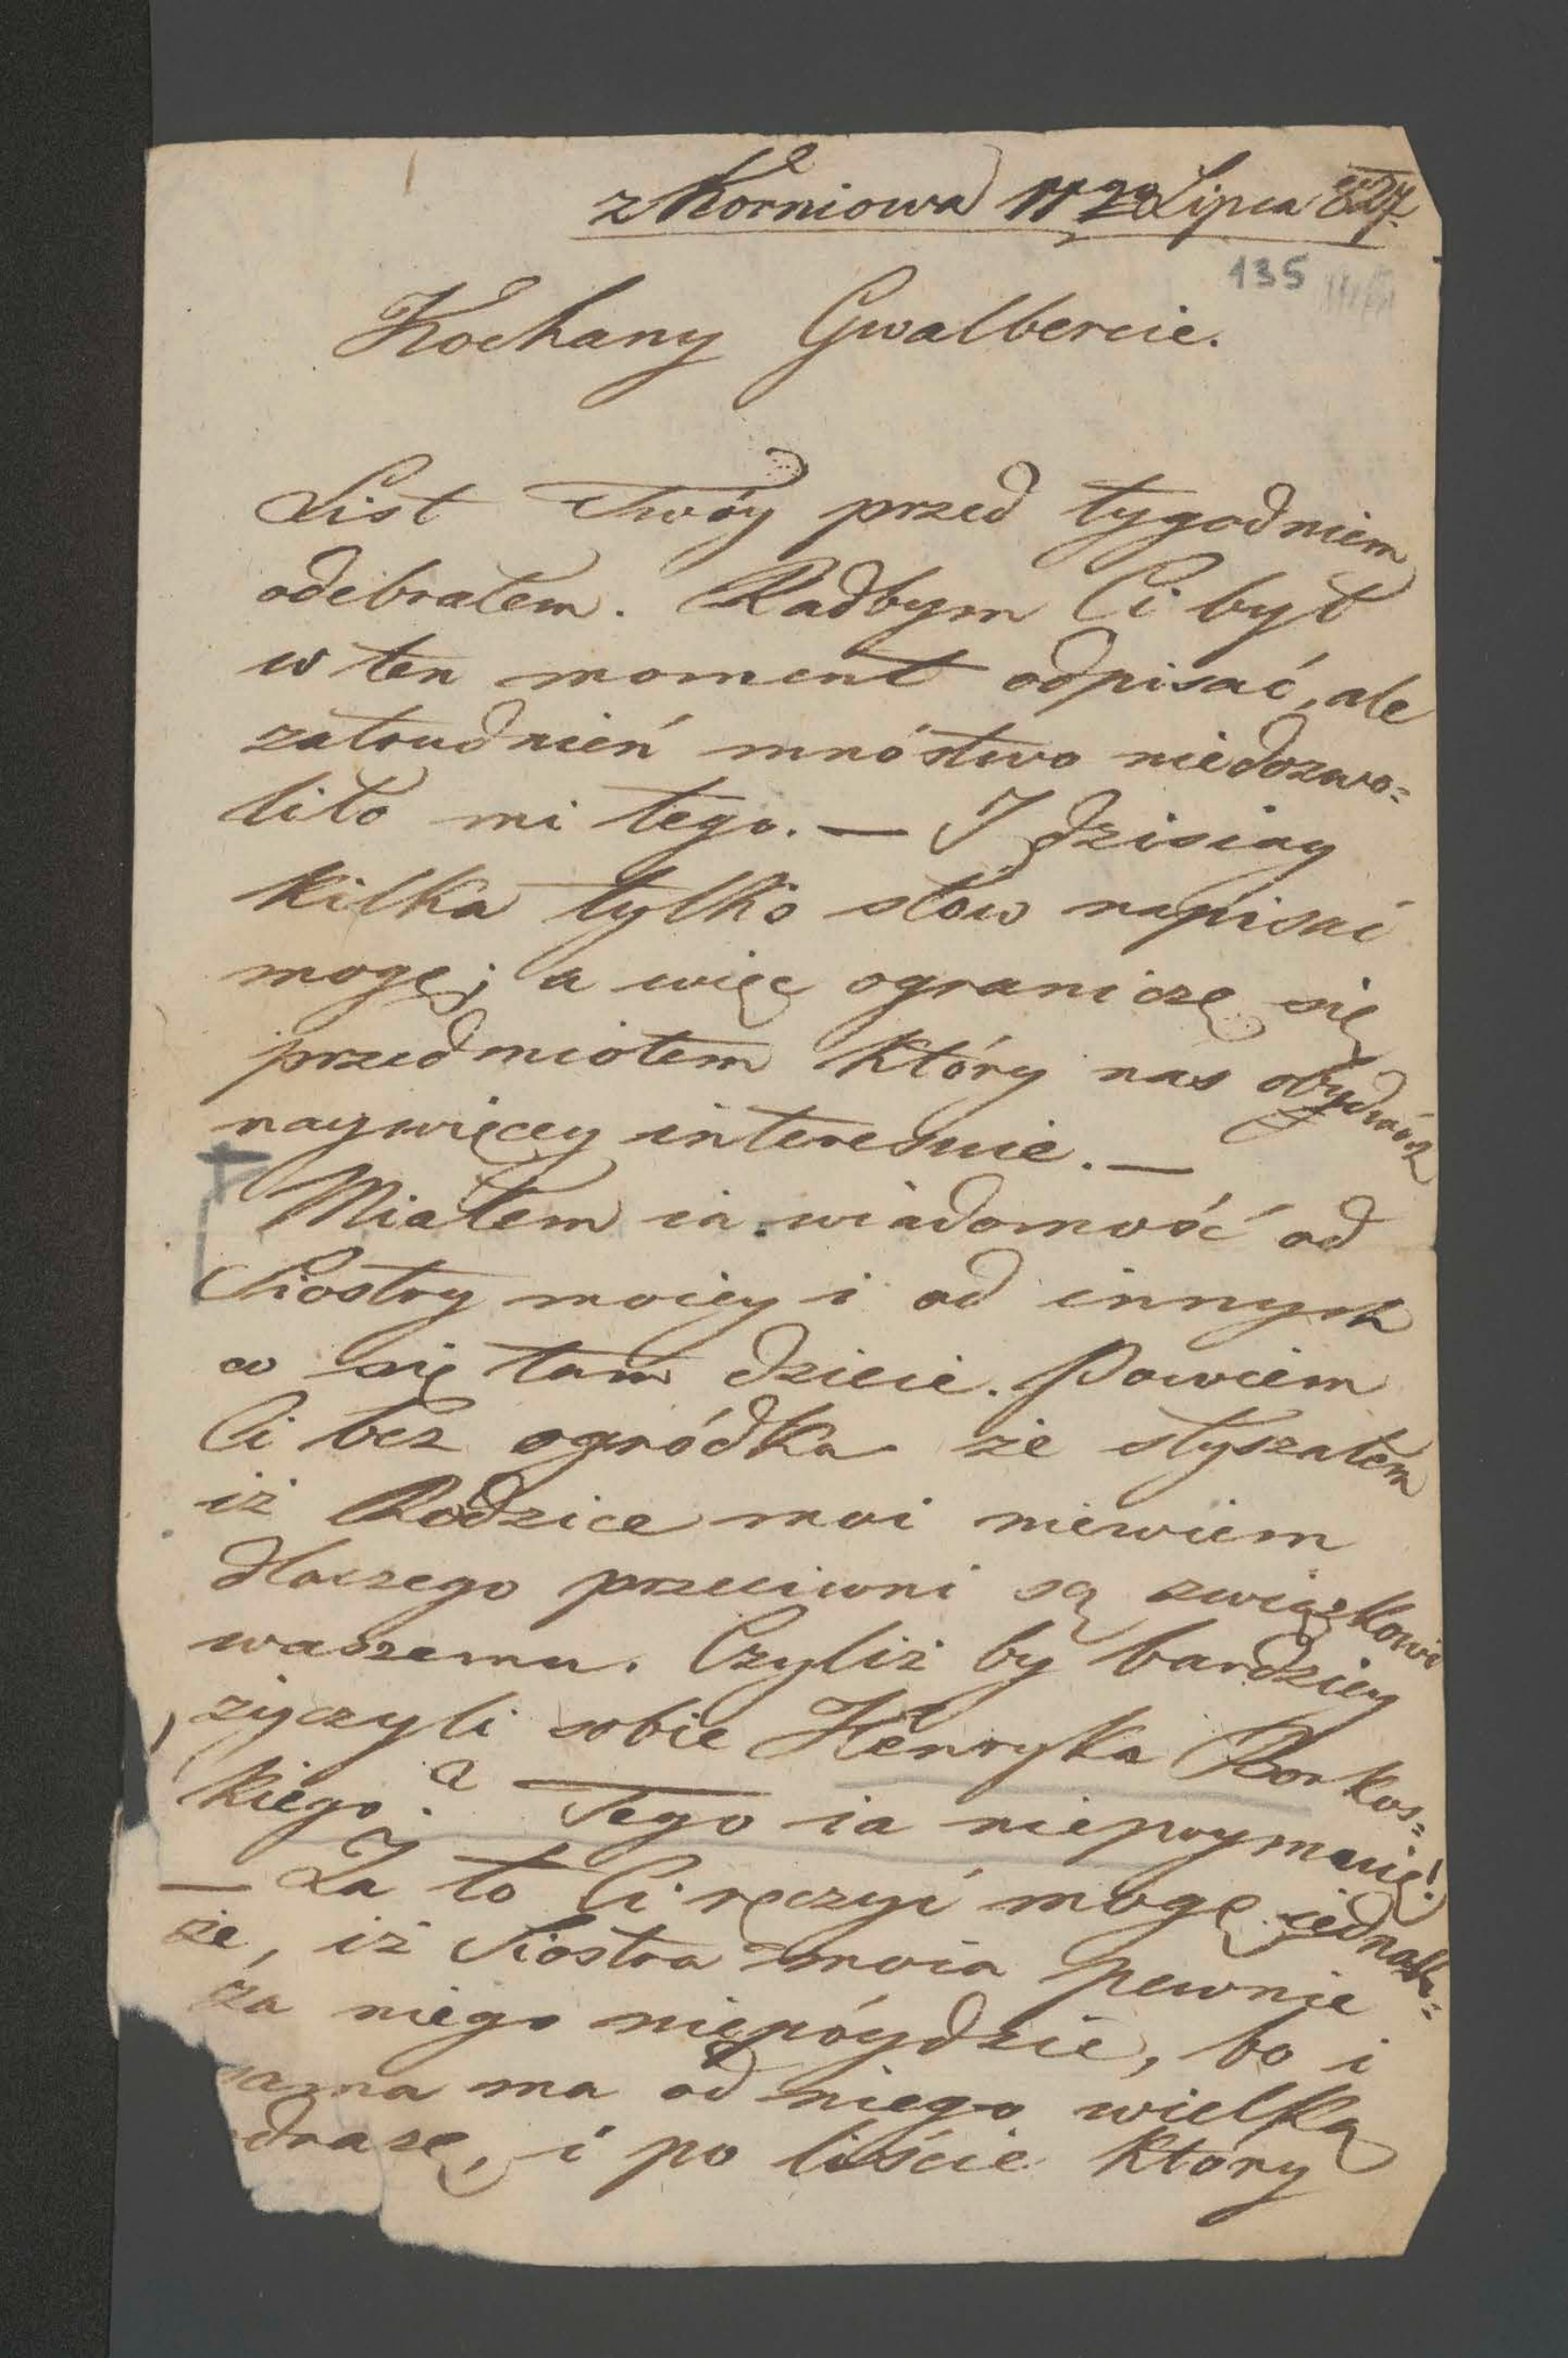 z Korniowa 11 20 Lipca 827.
135
Kochany Gwalbercie.
List Twóy przed tygodniem
odebrałem. Radbym Ci był
w ten moment odpisać, ale
zatrudnień mnóstwo niedozwo=
liło mi tego. — I dzisiay
kilka tylko słów napisać
mogę; a więc ograniczę się
przedmiotem który nas obydwóch
naywięcey interesuie. —
Miałem ia wiadomość od
Siostry moiey i od innych
co się tam dzieie. Powiem
Ci bez ogródka że słyszałem
iż Rodzice moi niewiem
dlaczego przeciwni są związkowi
waszemu. Czyliż by bardziey
życzyli sobie Henryka Borkos=
kiego? Tego ia niepoymuię!
— Za to Ci ręczyć mogę iednak=
że, iż Siostra moia pewnie
za niego niepóydzie, bo i
sama ma od niego wielką
odrazę, i po liście który